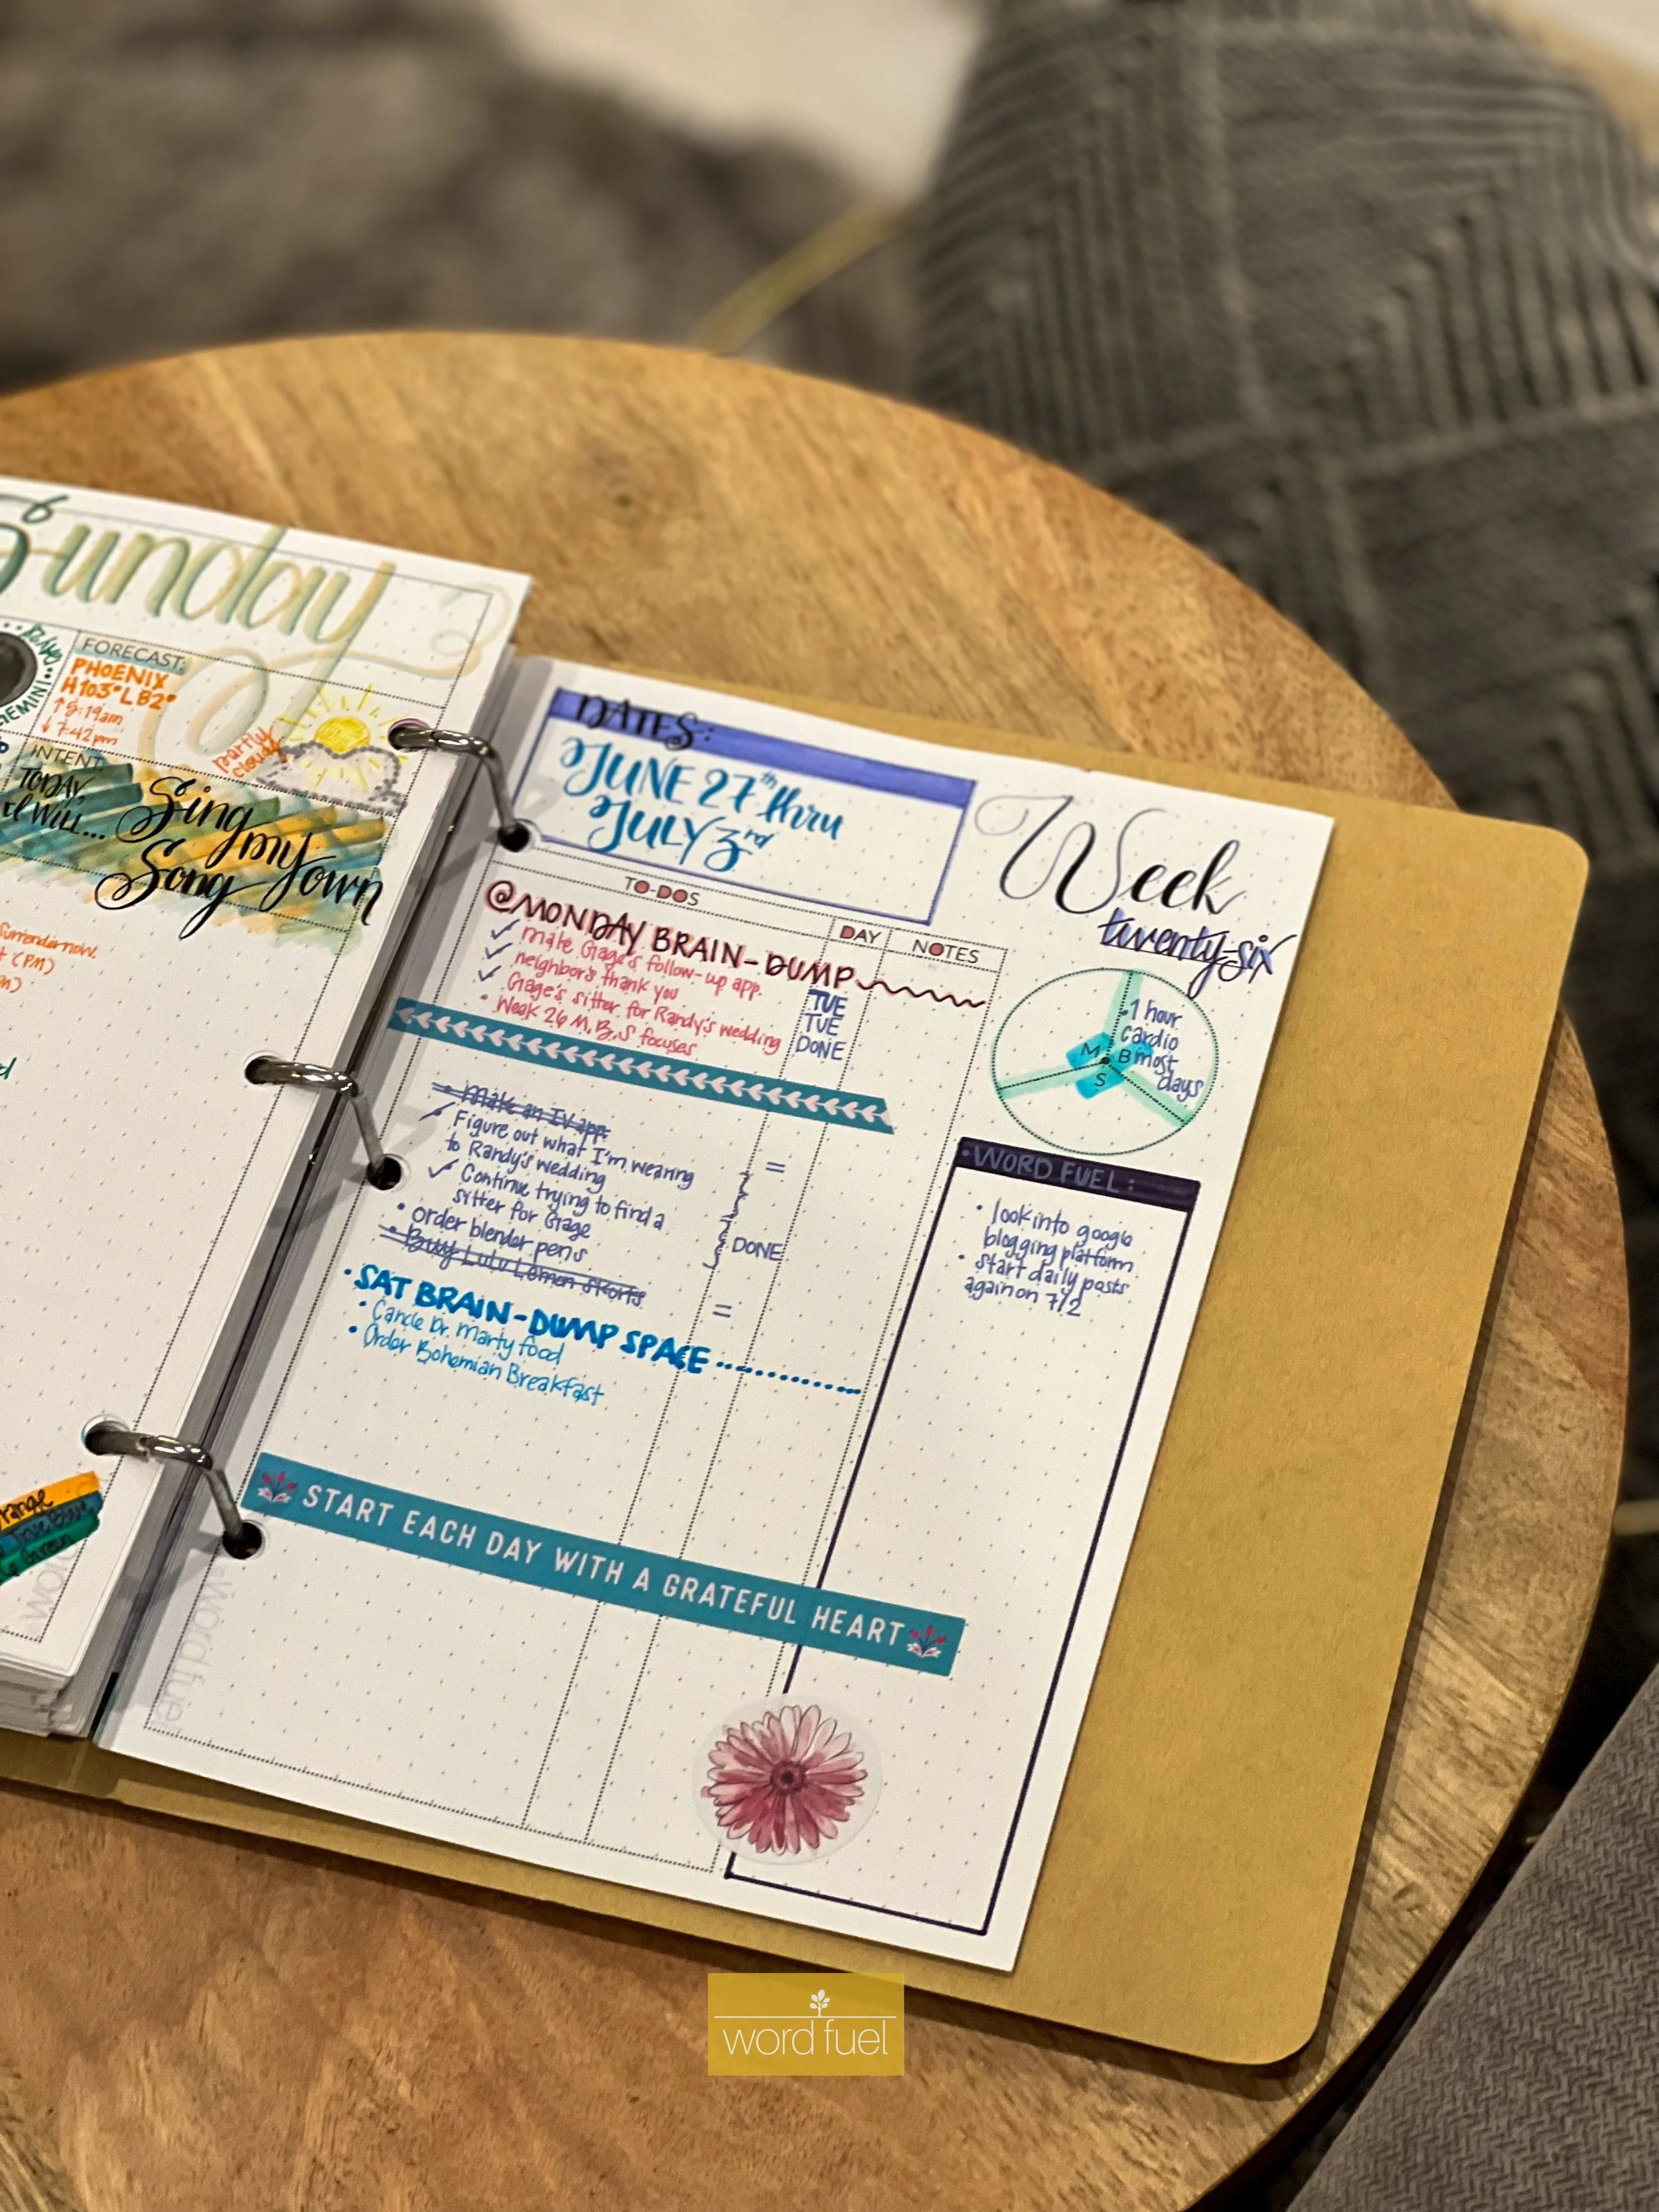 Sunday
GEMINI
FORECAST:
PHOENIX
H 103° L 82°
↑ 5:19am
↓ 7:42pm
partly
cloudy
INTENT
TODAY,
I WILL...
Sing my
Song Down
Surrender now.
(PM)
DATES:
JUNE 27th thru
JULY 3rd
Week
twenty-six
TO-DOS
DAY
NOTES
@MONDAY BRAIN-DUMP
✓ make Gage's follow-up app. TUE
✓ neighbor's thank you TUE
✓ Gage's sitter for Randy's wedding DONE
• Week 26 M, B, S focuses
• Make an IV app. =
✓ Figure out what I'm wearing
to Randy's wedding
✓ Continue trying to find a
sitter for Gage
DONE
• order blender pens
• Buy Lulu Lemon skorts =
• SAT BRAIN-DUMP SPACE
• Cancle Dr. Marty food
• Order Bohemian Breakfast
START EACH DAY WITH A GRATEFUL HEART
M B S
• 1 hour
cardio
most
days
• WORD FUEL:
• look into google
blogging platform
• start daily posts
again on 7/2
Green
word fuel
word fuel